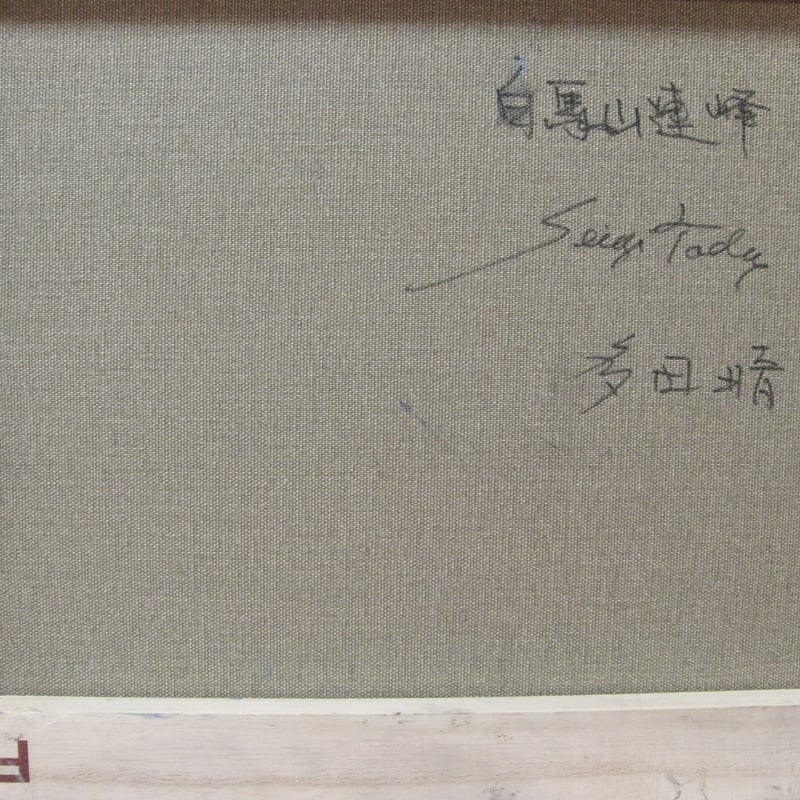 白馬山連峰
Tada
多田
F